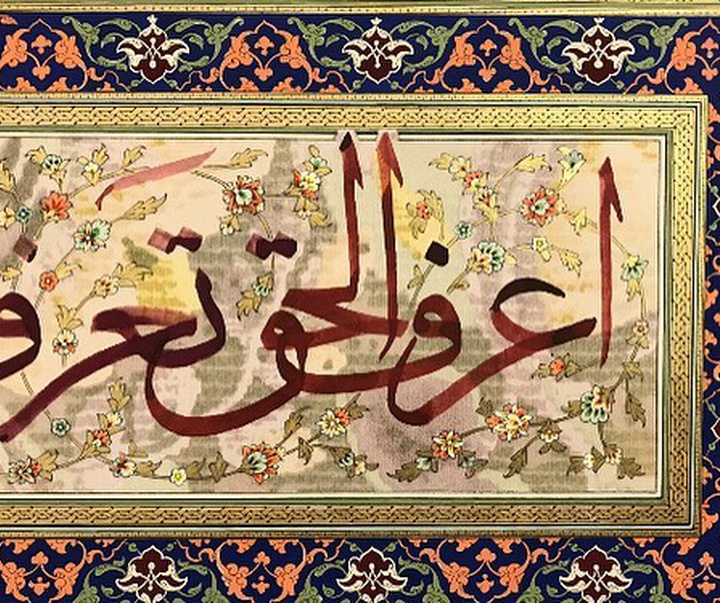 اعرف الحق تعرف